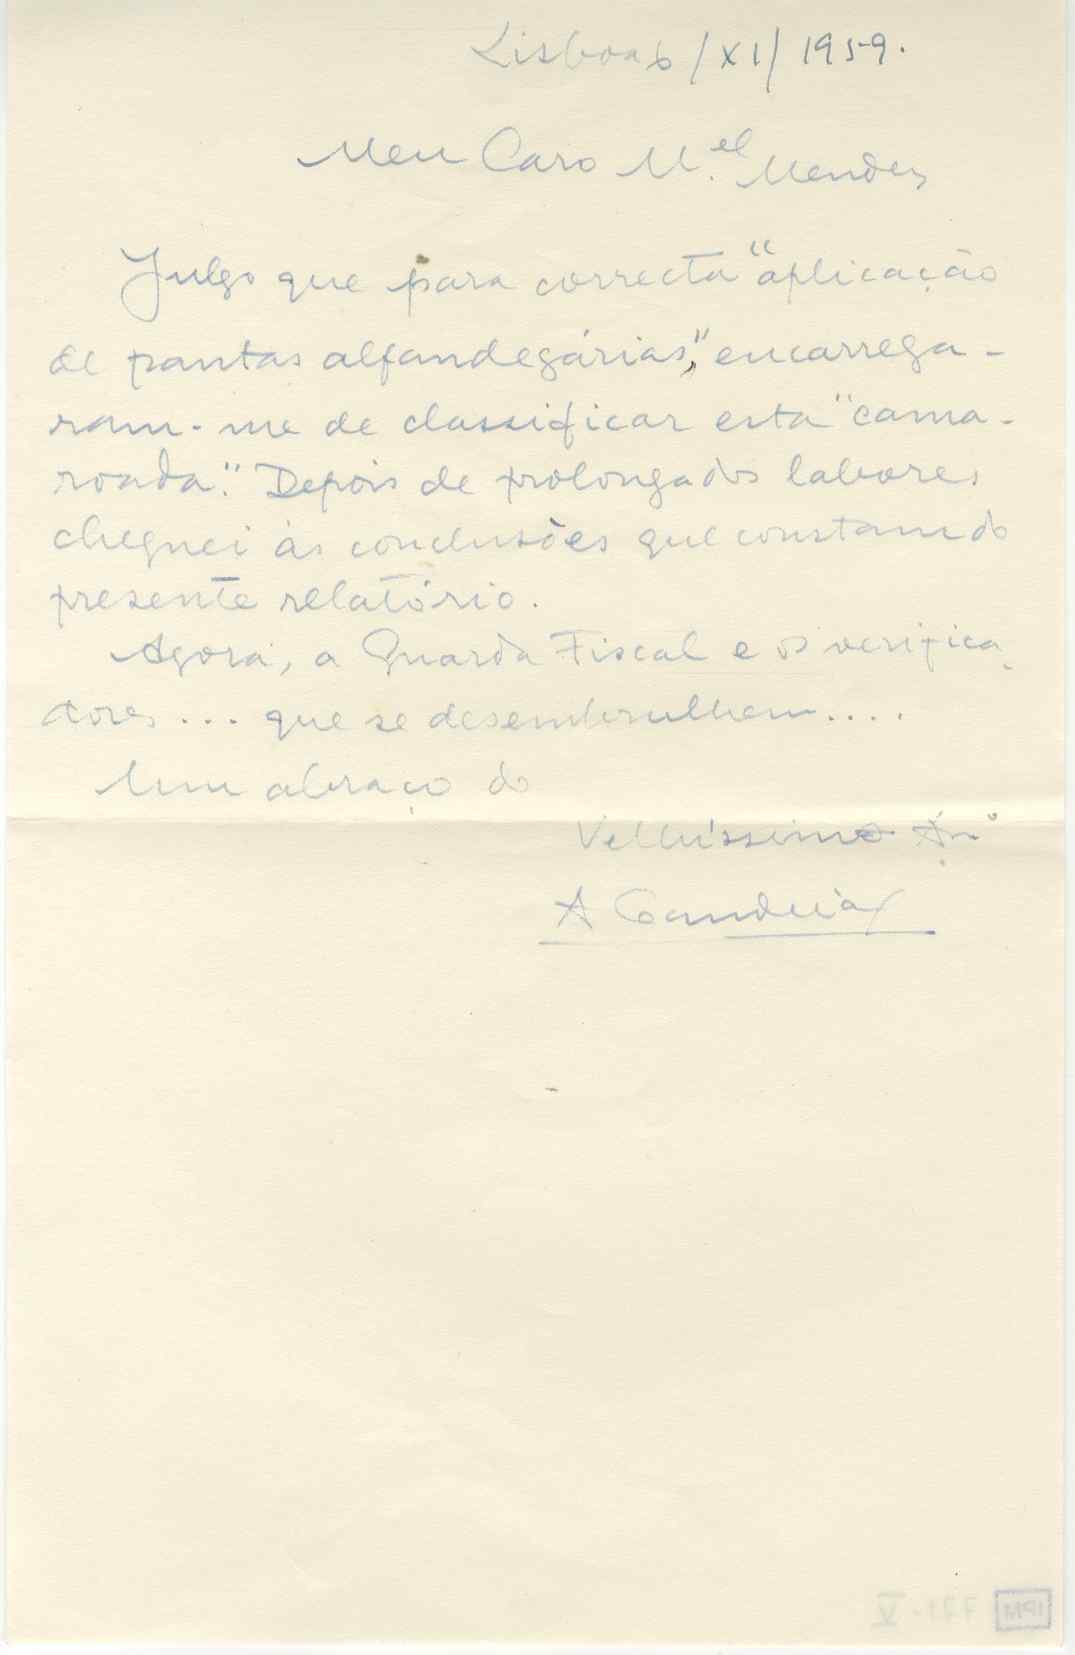 Lisboa 6/XI/1959.
Meu Caro M.el Mendes
Julgo que para correcta "aplicação
de pautas alfandegárias", encarrega-
ram-me de classificar esta "cama-
roada". Depois de prolongados labores
cheguei às conclusões que constam do
presente relatório.
Agora, a Guarda Fiscal e os verifica-
dores ... que se desembrulhem....
Um abraço do
Velhíssimo Am.o
A
IPM 771-V